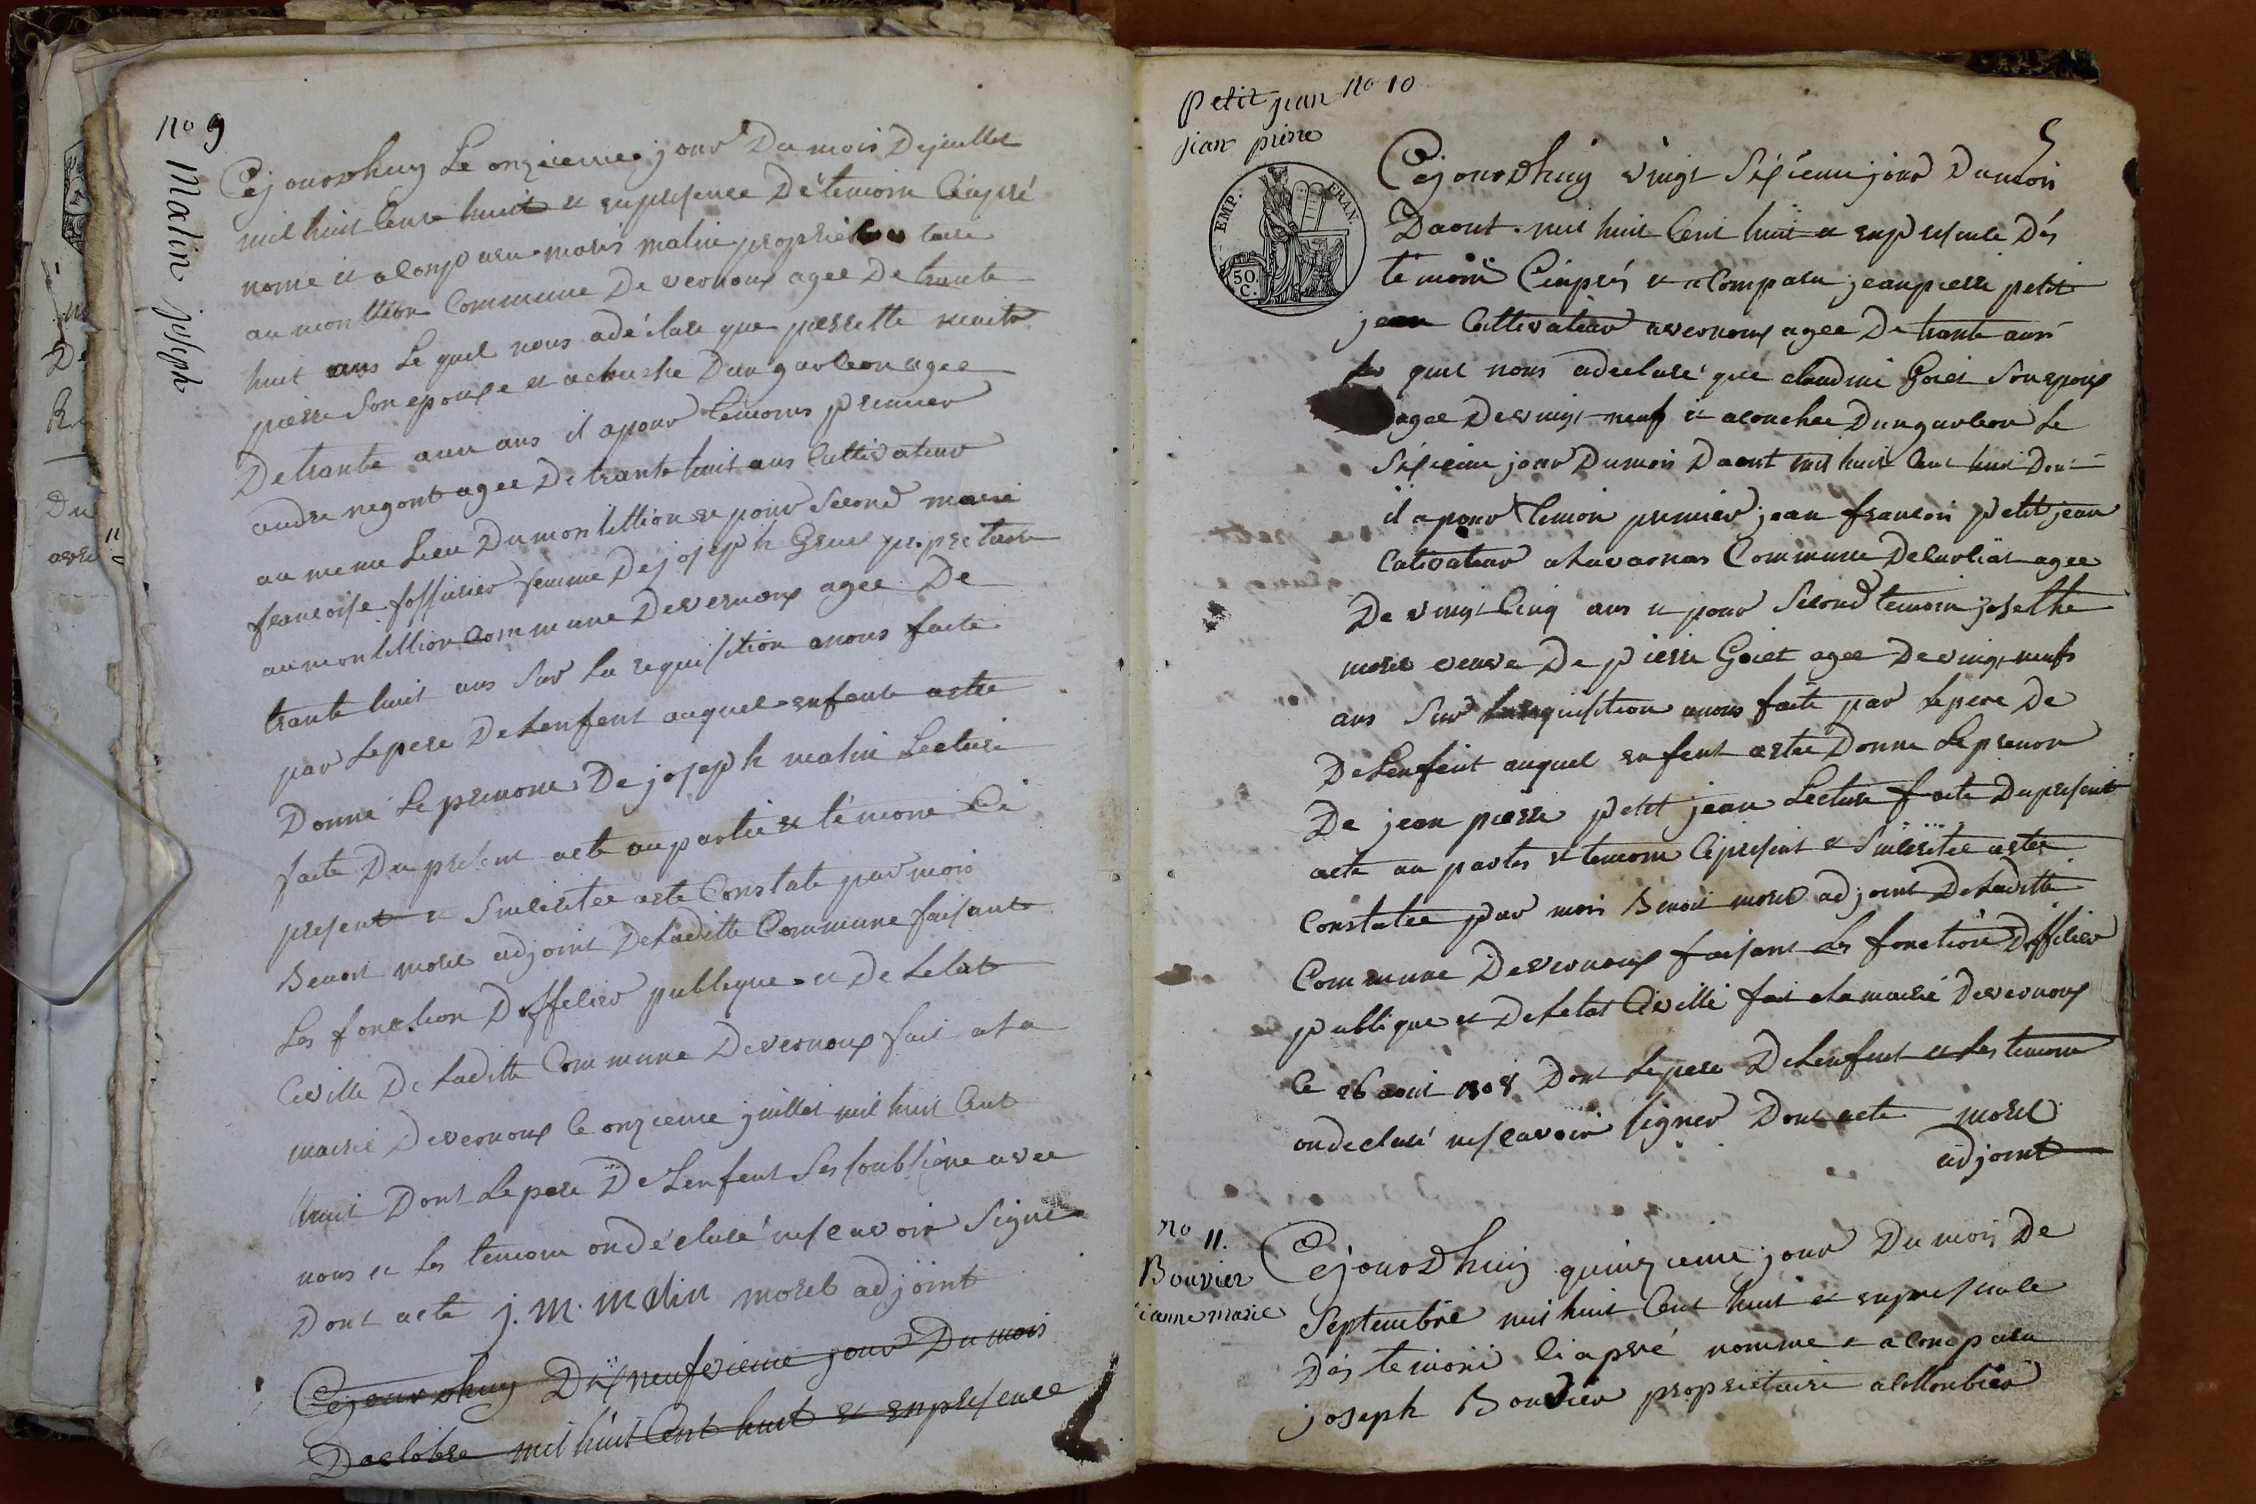 no 9
Malin joseph
Cejourdhuy Le onzieme jour Du mois Dejuillet
mil huit Cent huit et enpresence Dé temoin Ciapré
nome et a Comparu moris malin proprietaire
au montillion Commune De vernoux agee De trante
huit ans Le quel nous adéclare que pierrette
pierre son epouse et acouche Dun garCeon agee
De trante ans il apour temoins premier
andre negont agee De trante huit ans Cultivateur
au meme Lieu Du montillion et pour Second
francoise femme De joseph propretaire
au montillion Commune De vernoux agee De
trante huit ans Sur La requisition anous faite
par Le pere De Lenfent auquel enfent aetté
Donné Le prenom De joseph malin Lecture
faite Du present acte au partie et témoin Ci
present et Suivant acte Constaté par moi
Benoit morel adjoint De Laditte Commune faisant
Les fonction Dofficier publique et De Letat
Civille De Laditte Commune De vernoux fait a La
mairie De vernoux Ce onzieme juillet mil huit Cent
huit Dont Le pere De Lenfent avec
nous et Les temoin ondéclaré nescavoir Signe
Dont acte j. m. malin morel adjoint
Cejourdhuy Dix neufvieme jour Du mois
Doctobre mil huit Cent huit et enpresence
Petit jean no 10
jian pierre
5
EMP. FRAN.
50 C.
Cejourdhuy vingt Sixieme jour Du mois
Daout mil huit Cent huit et enpresence Dés
témoin Ciaprés et a Comparu jeanpierre petit
jean Cultivateur a vernoux agee De trante ans
Le quel nous adeclaré que claudine Goiet Son epoux
agee De vingt neuf et acouchee Dungarceon Le
Sixieme jour Dumois Daout mil huit Cent huit Dont
il a pour temoin premier jean francois petit jean
Cultivateur Commune De agee
De vingt Cinq ans et pour Second temoin josethe
morel veuve De pierre Goiet agee De vingt neufs
ans Sur La requisition anous faite par Le pere De
De Lenfent auquel enfent aetté Donne Le prenon
De jean pierre petit jean Lecture faite Du present
acte au partes et temoin Cipresent et aetté
Constatee par moi Benoit morel adjoint De Laditte
Commune De vernoux faisant Les fonction Dofficier
publique et De Letat Civille fait a La mairie De vernoux
Ce 26 aout 1808 Dont Le pere De Lenfent et Les temoin
ondeclaré nescavoir signer Dont acte morel
adjoint
no 11.
Bouvier
jeanne marie
Cejourdhuy quinzieme jour Du mois De
Septembre mil huit Cent huit et enpresence
Dés temoin Ciapré nomme et a Comparu
joseph Bouvier proprietaire